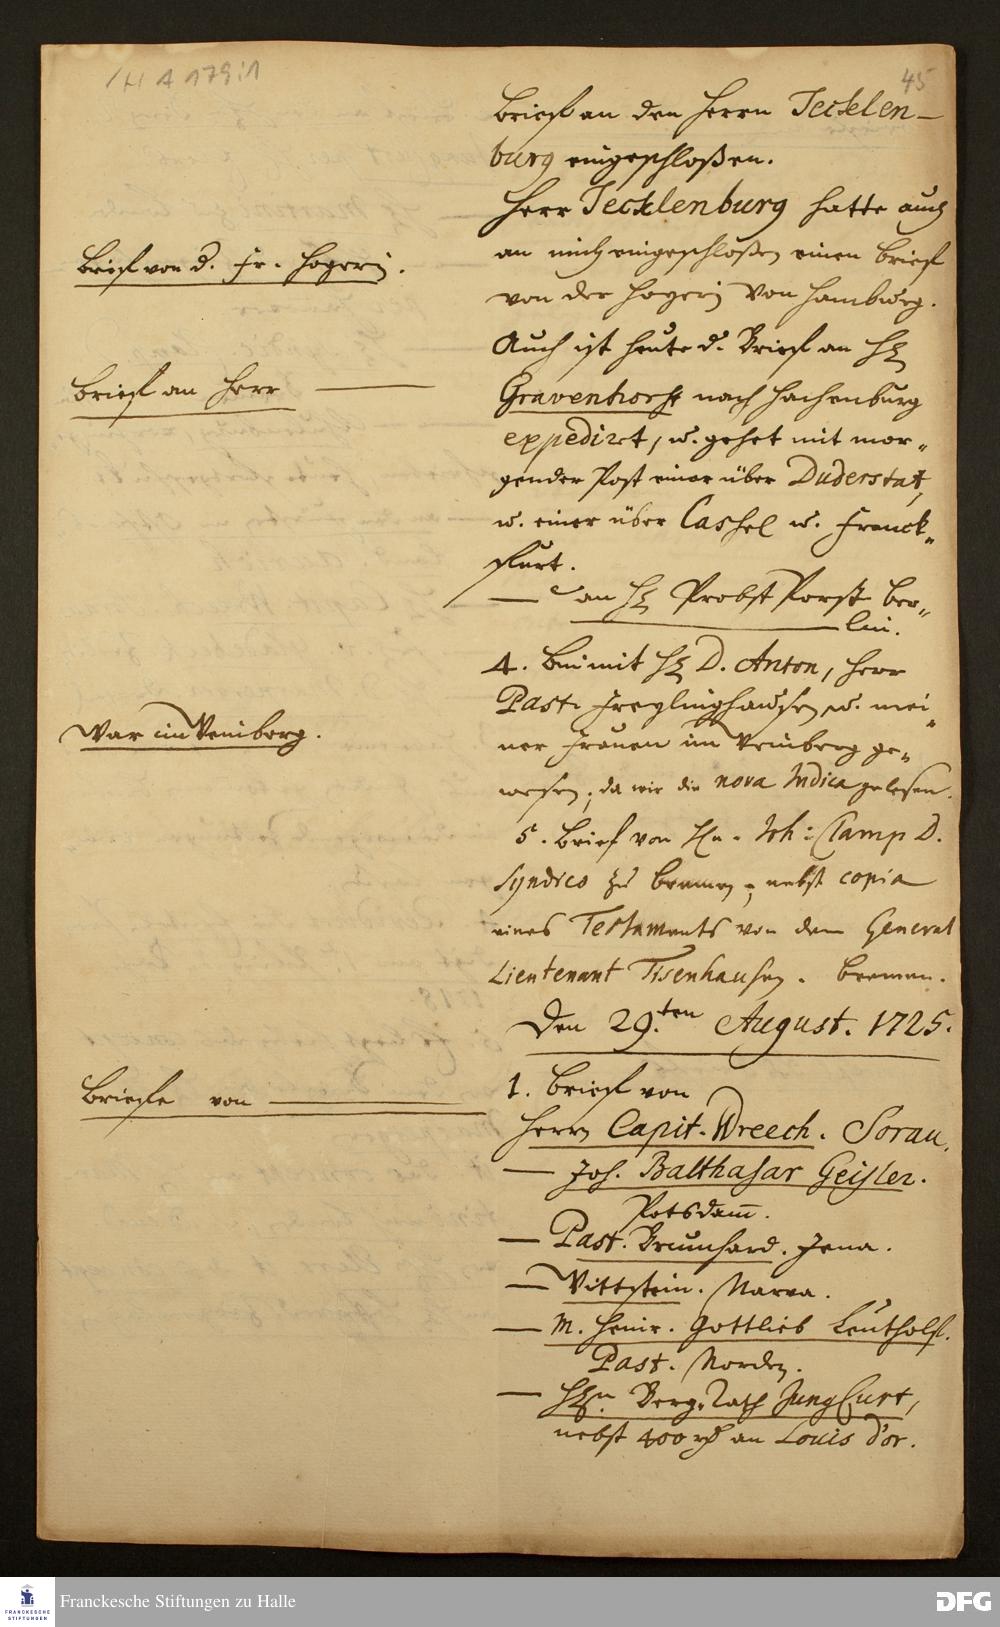 H A 179:1
45
Brief an den Herrn Tecklen-
burg eingeschloßen.
Herr Tecklenburg hatte auch
an mich eingeschloßen einen Brief
Brief von d. Fr. Hogerin.
von der Hogerin von Hamburg.
Auch ist heute d. Brief an H
Brief an Herr
Gravenhorst nach Hachenburg
expediret, u. gehet mit mor-
gender Post einer über Duderstat,
u. einer über Cassel u. Franck-
furt.
— an H Probst Porst Ber-
lin.
4. Bin mit H D. Anton, Herr
Past. Freylinghausen u. mei-
War im Weinberg.
ner Frauen im Weinberg ge-
wesen; da wir die nova Indica gelesen.
5. Brief von Hn. Joh: Clamp D.
Syndico zu Bremen, nebst copia
eines Testaments von dem General
Lieutenant Tisenhausen. Bremen.
Den 29.ten August. 1725.
Briefe von
1. Brief von
Herrn Capit. Wreech. Sorau.
— Joh. Balthasar Geisler.
Potsdam.
— Past. Brumhard. Jena.
— Vittstein. Narva.
— M. Heinr. Gottlieb Leutholf.
Past. Norden.
— Hn. Berg-Rath JungCurt,
nebst 400 rh an Louis d'or.
Franckesche Stiftungen zu Halle
FRANCKESCHE
STIFTUNGEN
DFG